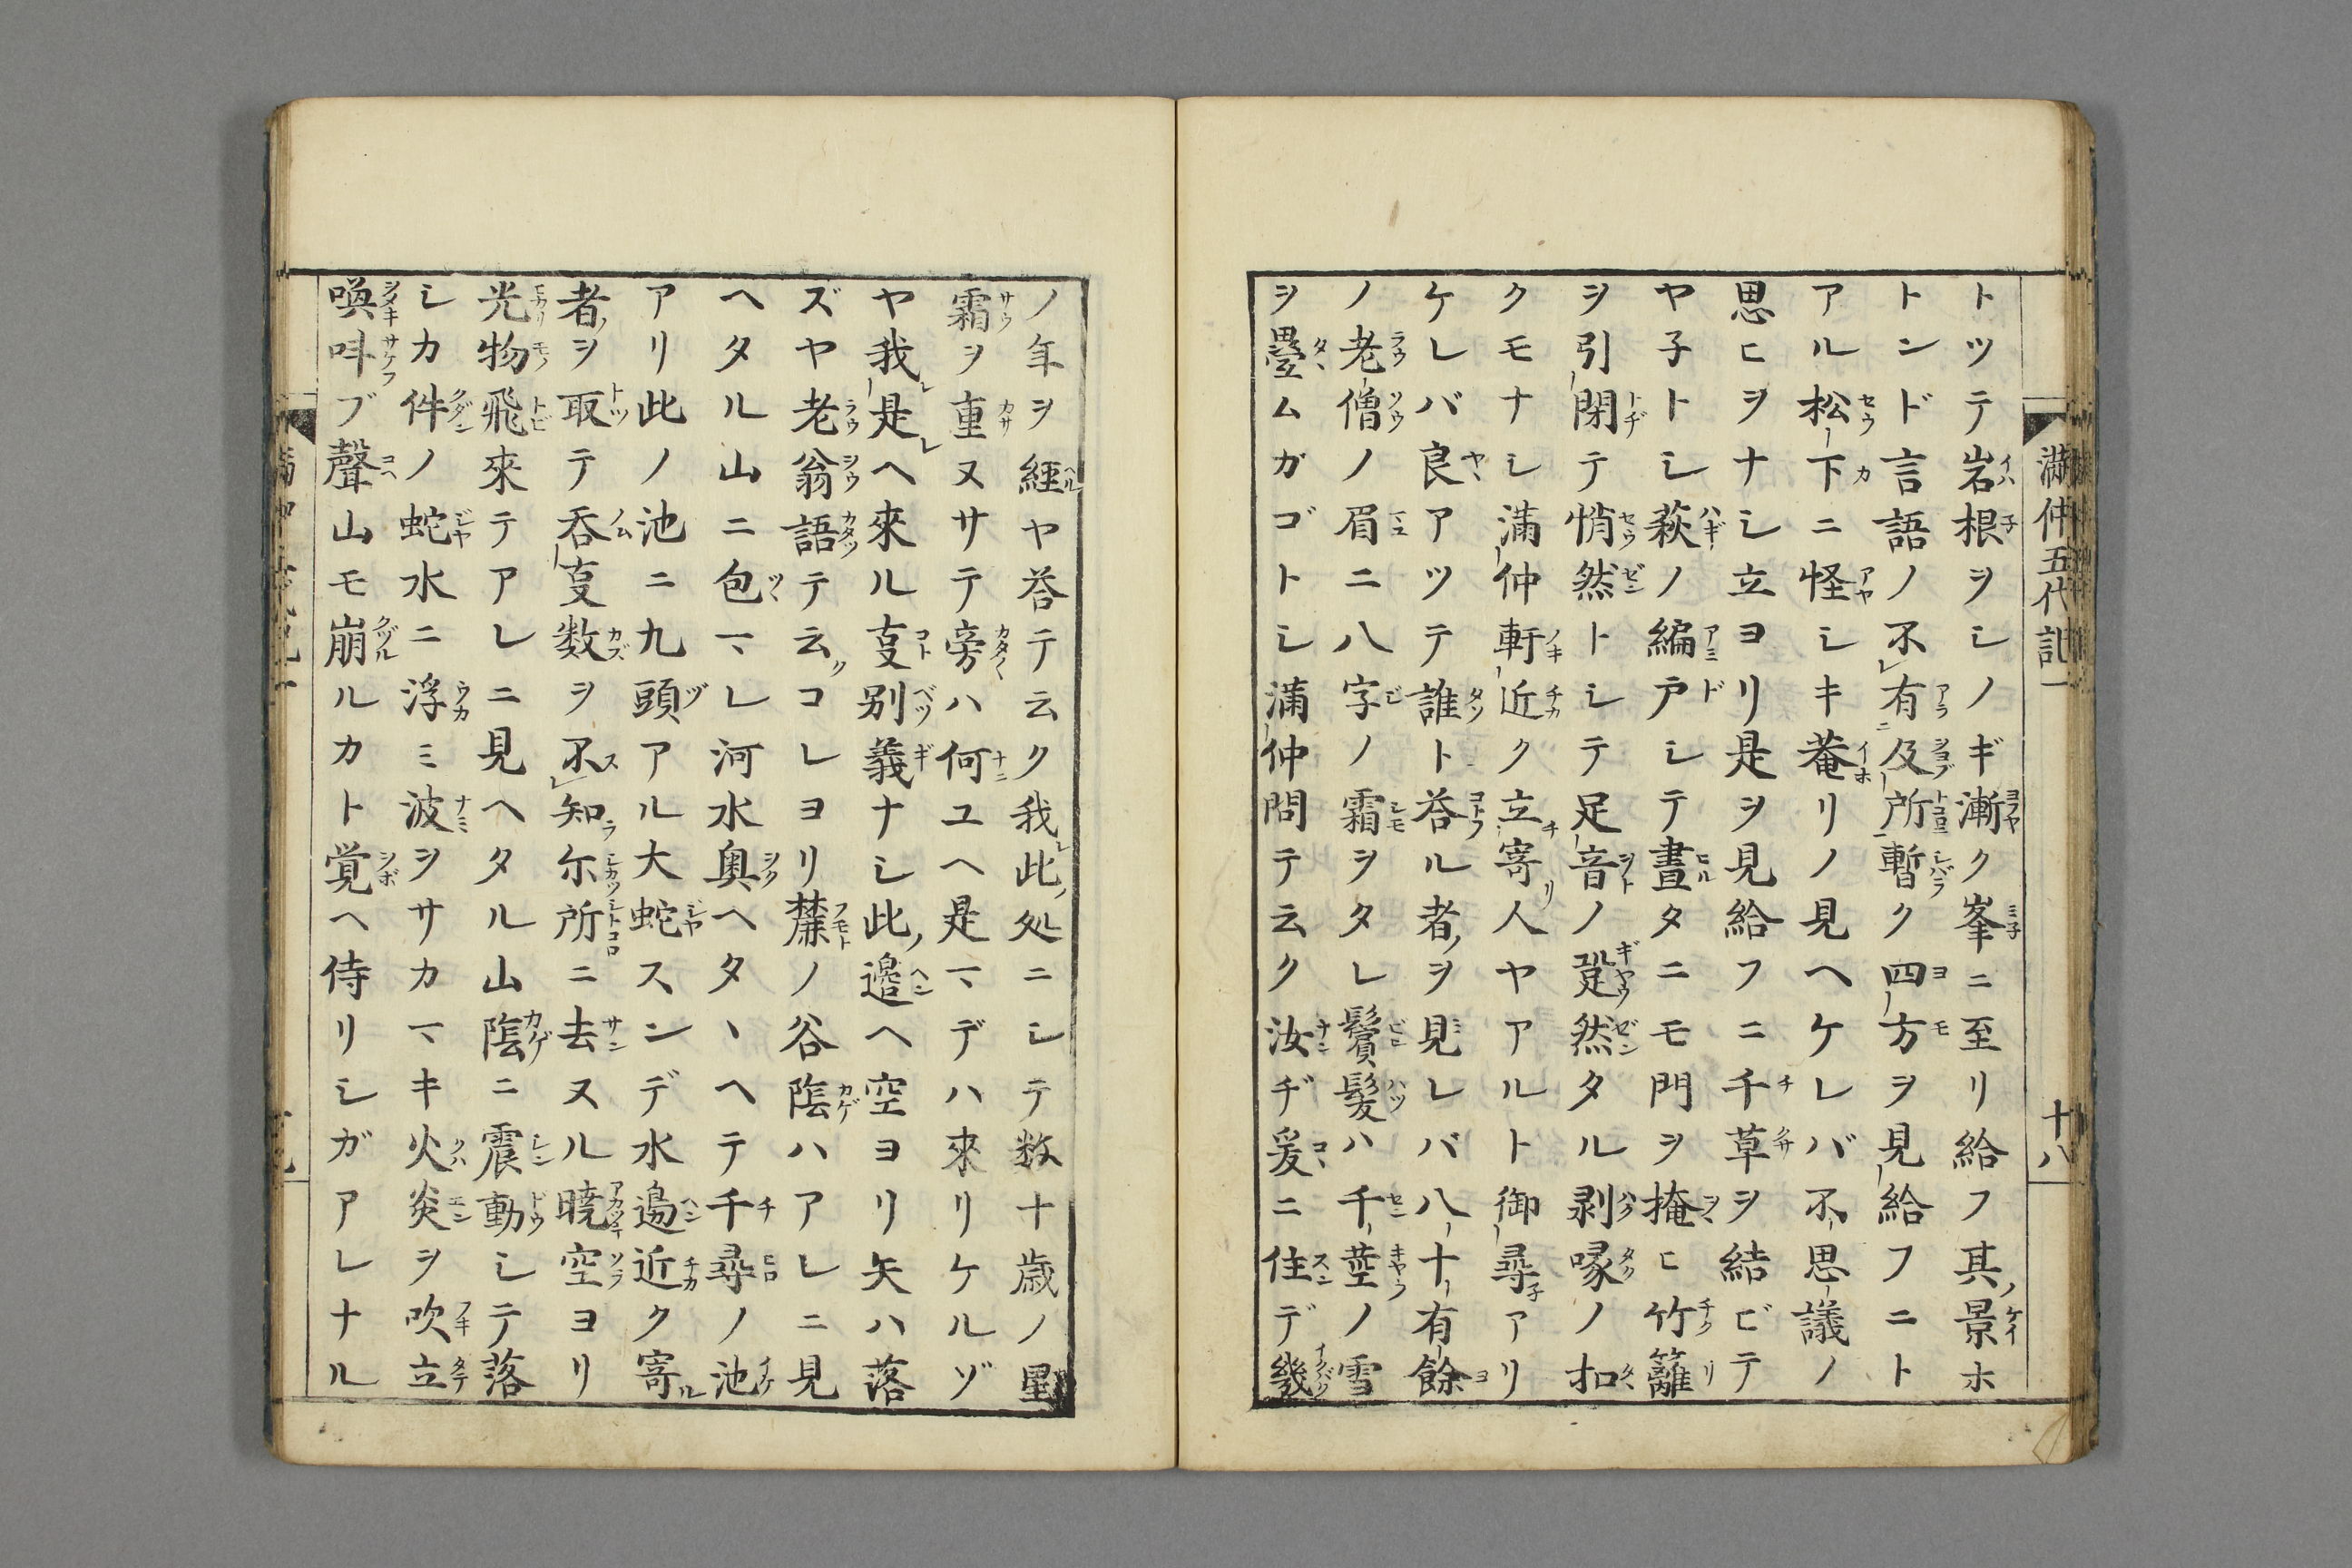 満仲五代記一
十八
トツテ岩根ヲシノギ漸ク峯ニ至リ給フ其ノ景ホ
トンド言語ノ不有及所暫ク四方ヲ見給フニト
アル松下ニ怪シキ菴リノ見ヘケレバ不思議ノ
思ヒヲナシ立ヨリ是ヲ見給フニ千草ヲ結ビテ
ヤ子トシ萩ノ編戸シテ晝タニモ門ヲ掩ヒ竹籬
ヲ引閉テ悄然トシテ足音ノ跫然タル剥啄ノ扣
クモナシ満仲軒近ク立寄リ人ヤアルト御尋アリ
ケレバ良アツテ誰ト荅ル者ノヲ見レバ八十有餘
ノ老僧ノ眉ニ八字ノ霜ヲタレ鬢髪ハ千莖ノ雪
ヲ疊ムガゴトシ満仲問テ云ク汝ヂ爰ニ住デ幾
ノ年ヲ経ヤ荅テ云ク我此ノ処ニシテ数十歳ノ星
霜ヲ重ヌサテ旁ハ何ユヘ是マデハ來リケルゾ
ヤ我是ヘ來ル㕝別義ナシ此ノ邊ヘ空ヨリ矢ハ落
ズヤ老翁語テ云クコレヨリ麓ノ谷陰ハアレニ見
ヘタル山ニ包マレ河水奥ヘタヽヘテ千尋ノ池
アリ此ノ池ニ九頭アル大蛇スンデ水邉近ク寄ル
者ノヲ取テ呑㕝数ヲ不知尓所ニ去ヌル暁空ヨリ
光物飛來テアレニ見ヘタル山陰ニ震動シテ落
シカ件ノ蛇水ニ浮ミ波ヲサカマキ火炎ヲ吹立
喚呌ブ聲山モ崩ルカト覚ヘ侍リシガアレナル